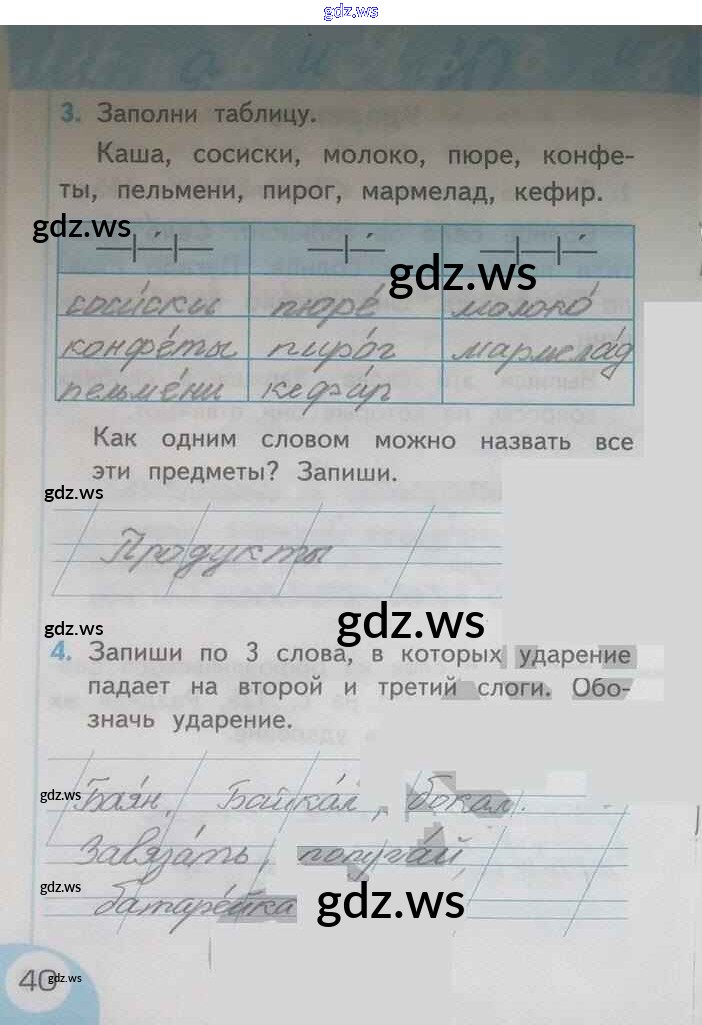 gdz.ws
3. Заполни таблицу.
Каша, сосиски, молоко, пюре, конфе-
ты, пельмени, пирог, мармелад, кефир.
gdz.ws
gdz.ws
соси́ски пюре́ молоко́
конфе́ты пиро́г мармела́д
пельме́ни кефи́р
Как одним словом можно назвать все
эти предметы? Запиши.
gdz.ws
Продукты
gdz.ws
gdz.ws
4. Запиши по 3 слова, в которых ударение
падает на второй и третий слоги. Обо-
значь ударение.
gdz.ws
Бая́н, Байка́л, бокал.
Завяза́ть, попуга́й,
gdz.ws
батаре́йка
gdz.ws
40
gdz.ws